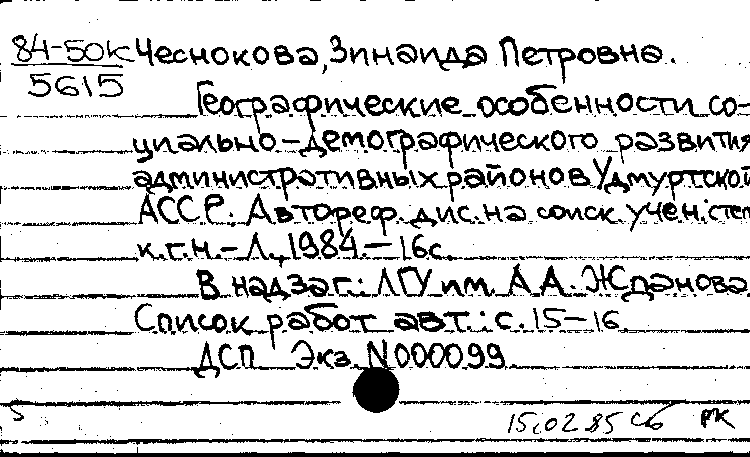 84-50к Чеснокова, Зинаида Петровна.
5615
Географические особенности со-
циально-демографического развития
административных районов Удмуртской
АССР. Автореф. дис. на соиск. учен. степ
к.г.н. - Л., 1984. - 16с.
В надзаг.: ЛГУ им. А.А. Жданова
Список работ авт.: с. 15-16
ДСП Экз N000099
5
15.02.85 Сб РК